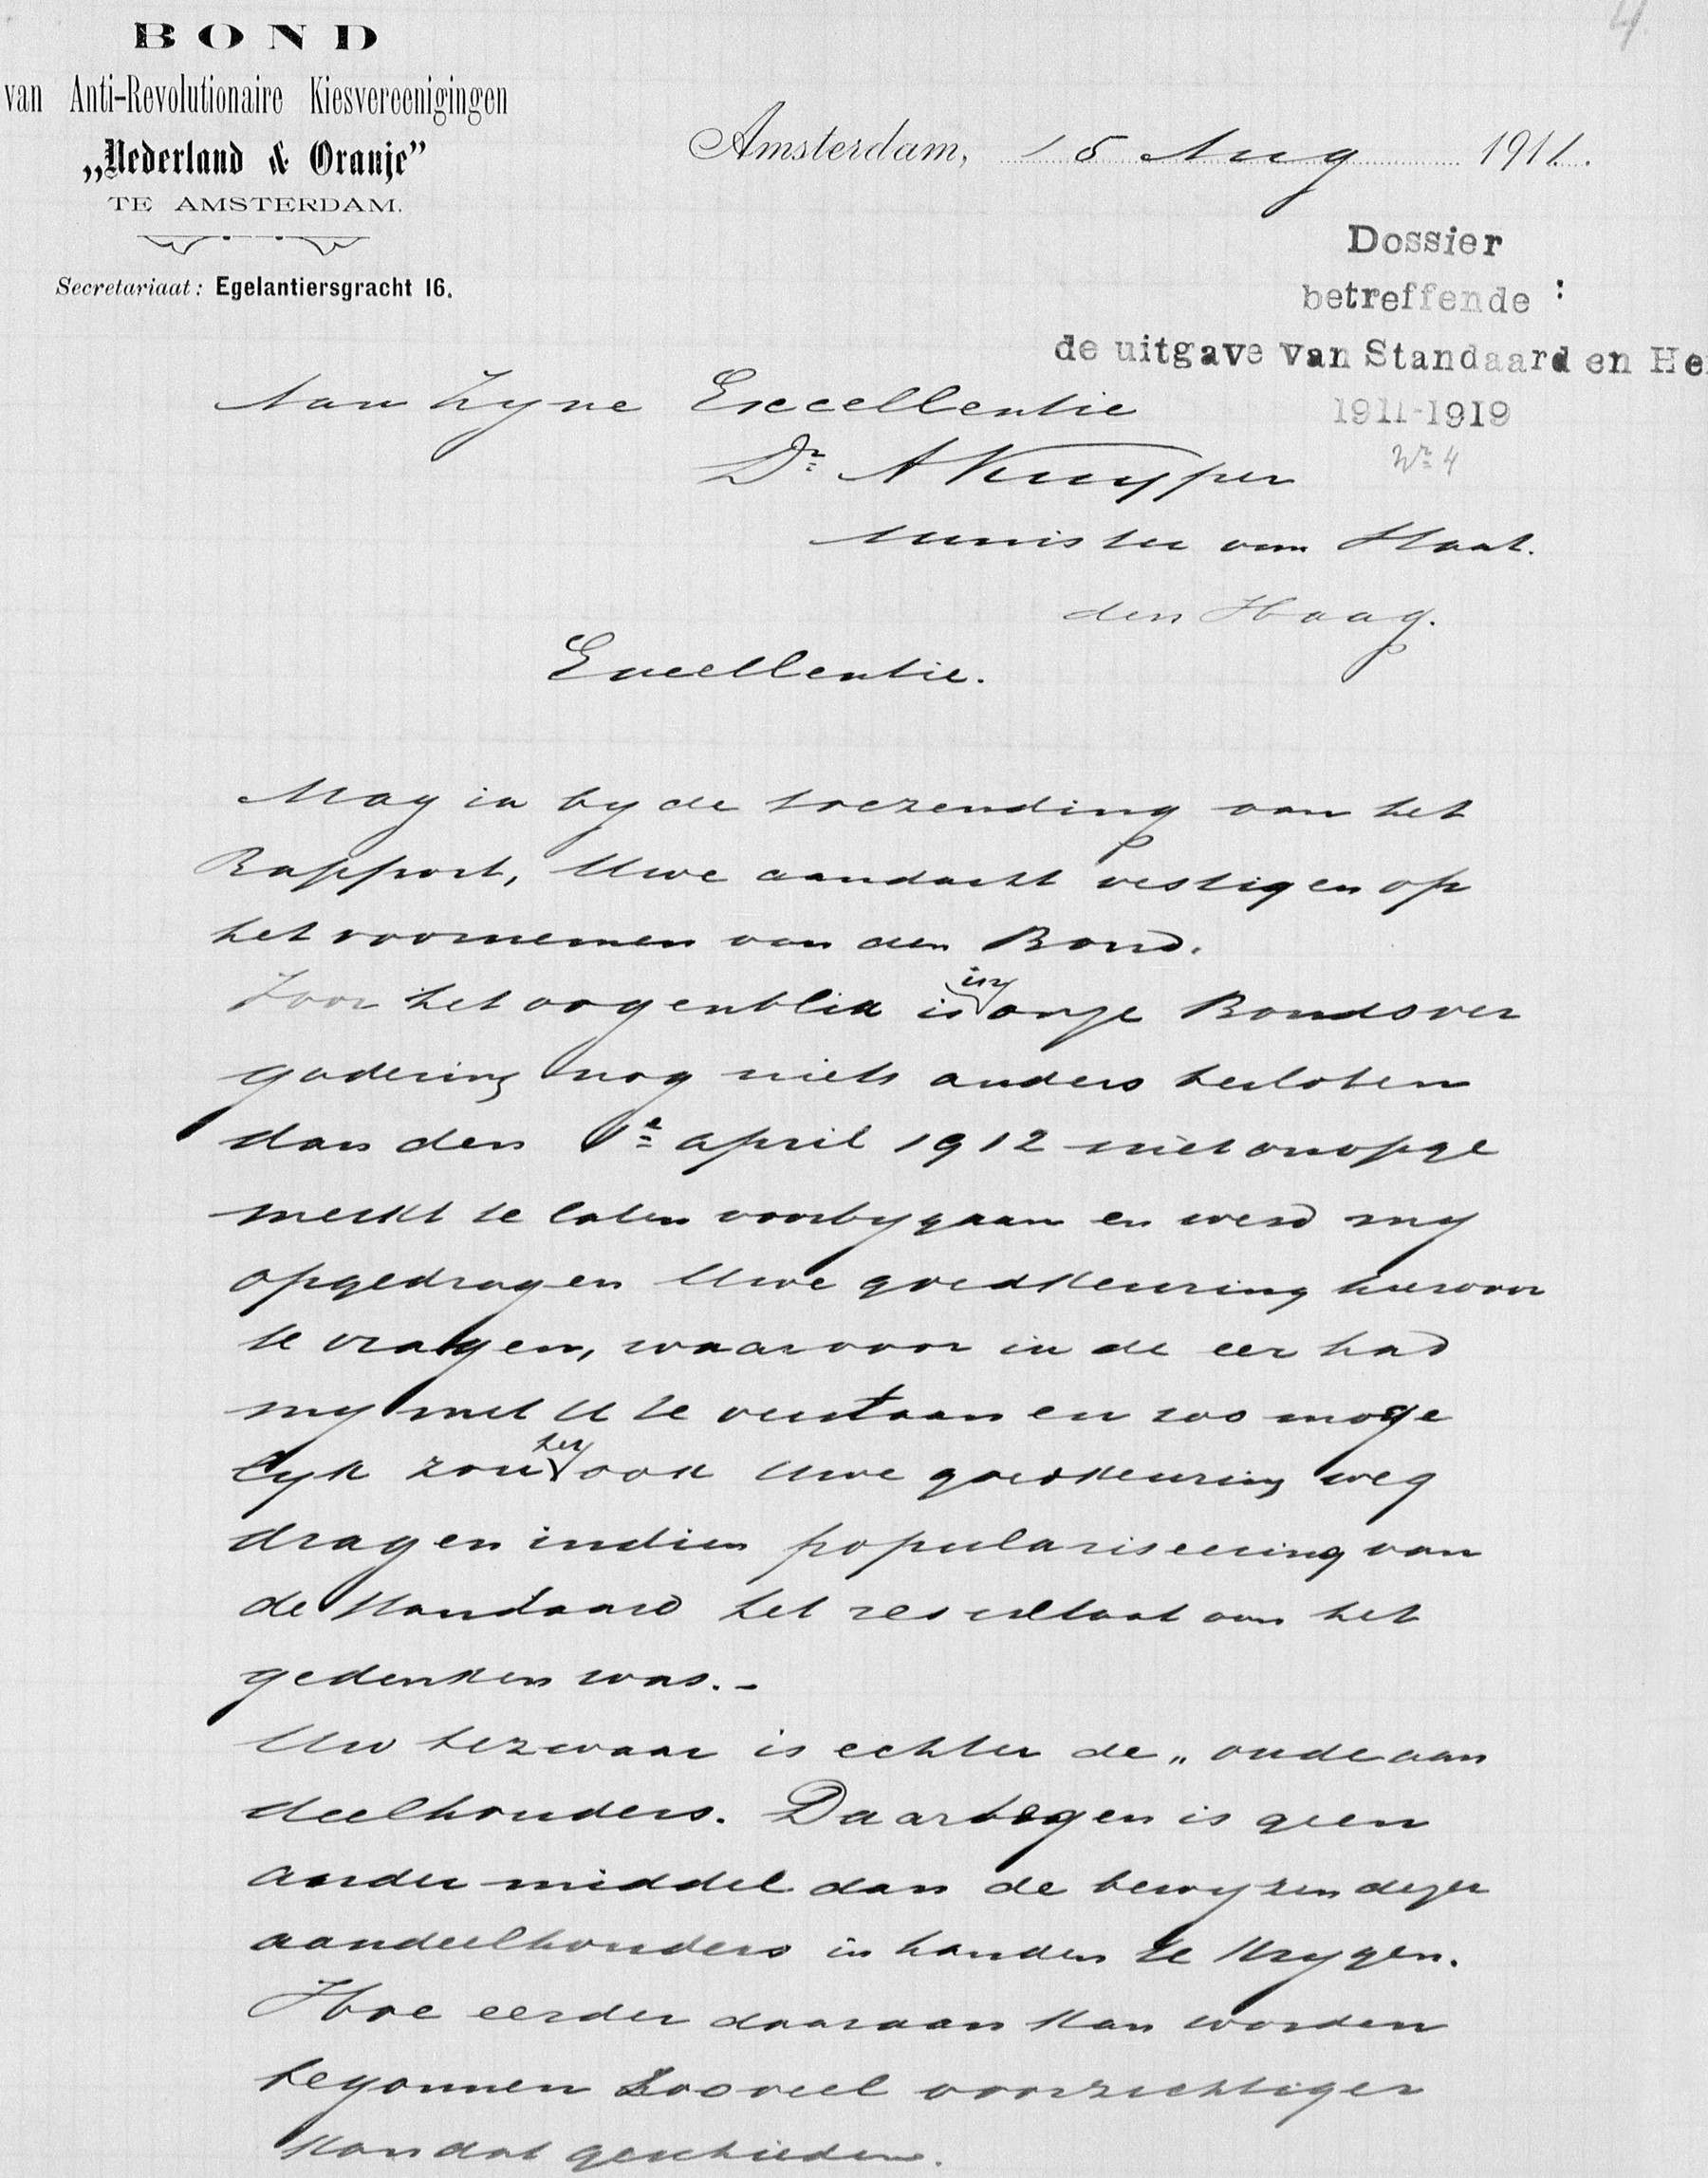 4
BOND
van Anti-Revolutionaire Kiesvereenigingen
„Nederland & Oranje"
TE AMSTERDAM.
Secretariaat: Egelantiersgracht 16.
Amsterdam, 15 Aug 1911.
Dossier
betreffende :
de uitgave van Standaard en He
1911-1919
No 4
Aan Zyne Excellentie
Dr A Kuyper
Minister van Staat.
den Haag.
Excellentie.
Mag ik by de toezending van het
Rapport, Uwe aandacht vestigen op
het voornemen van den Bond.
Voor het oogenblik is in onze Bondsver
gadering nog niets anders besloten
dan den 1e april 1912 niet onopge
merkt te laten voorbygaan en werd my
opgedragen Uwe goedkeuring hiervoor
te vragen, waarvoor ik de eer had
my met U te verstaan en zoo moge
lyk zou het ook Uwe goedkeuring weg
dragen indien populariseering van
de Standaard het resultaat van het
gedenken was.-
Uw bezwaar is echter de „oude aan
deelhouders. Daartegen is geen
ander middel dan de bewyzen dezer
aandeelhouders in handen te krygen.
Hoe eerder daaraan kan worden
begonnen zooveel voorzichtiger
kan dat geschieden.